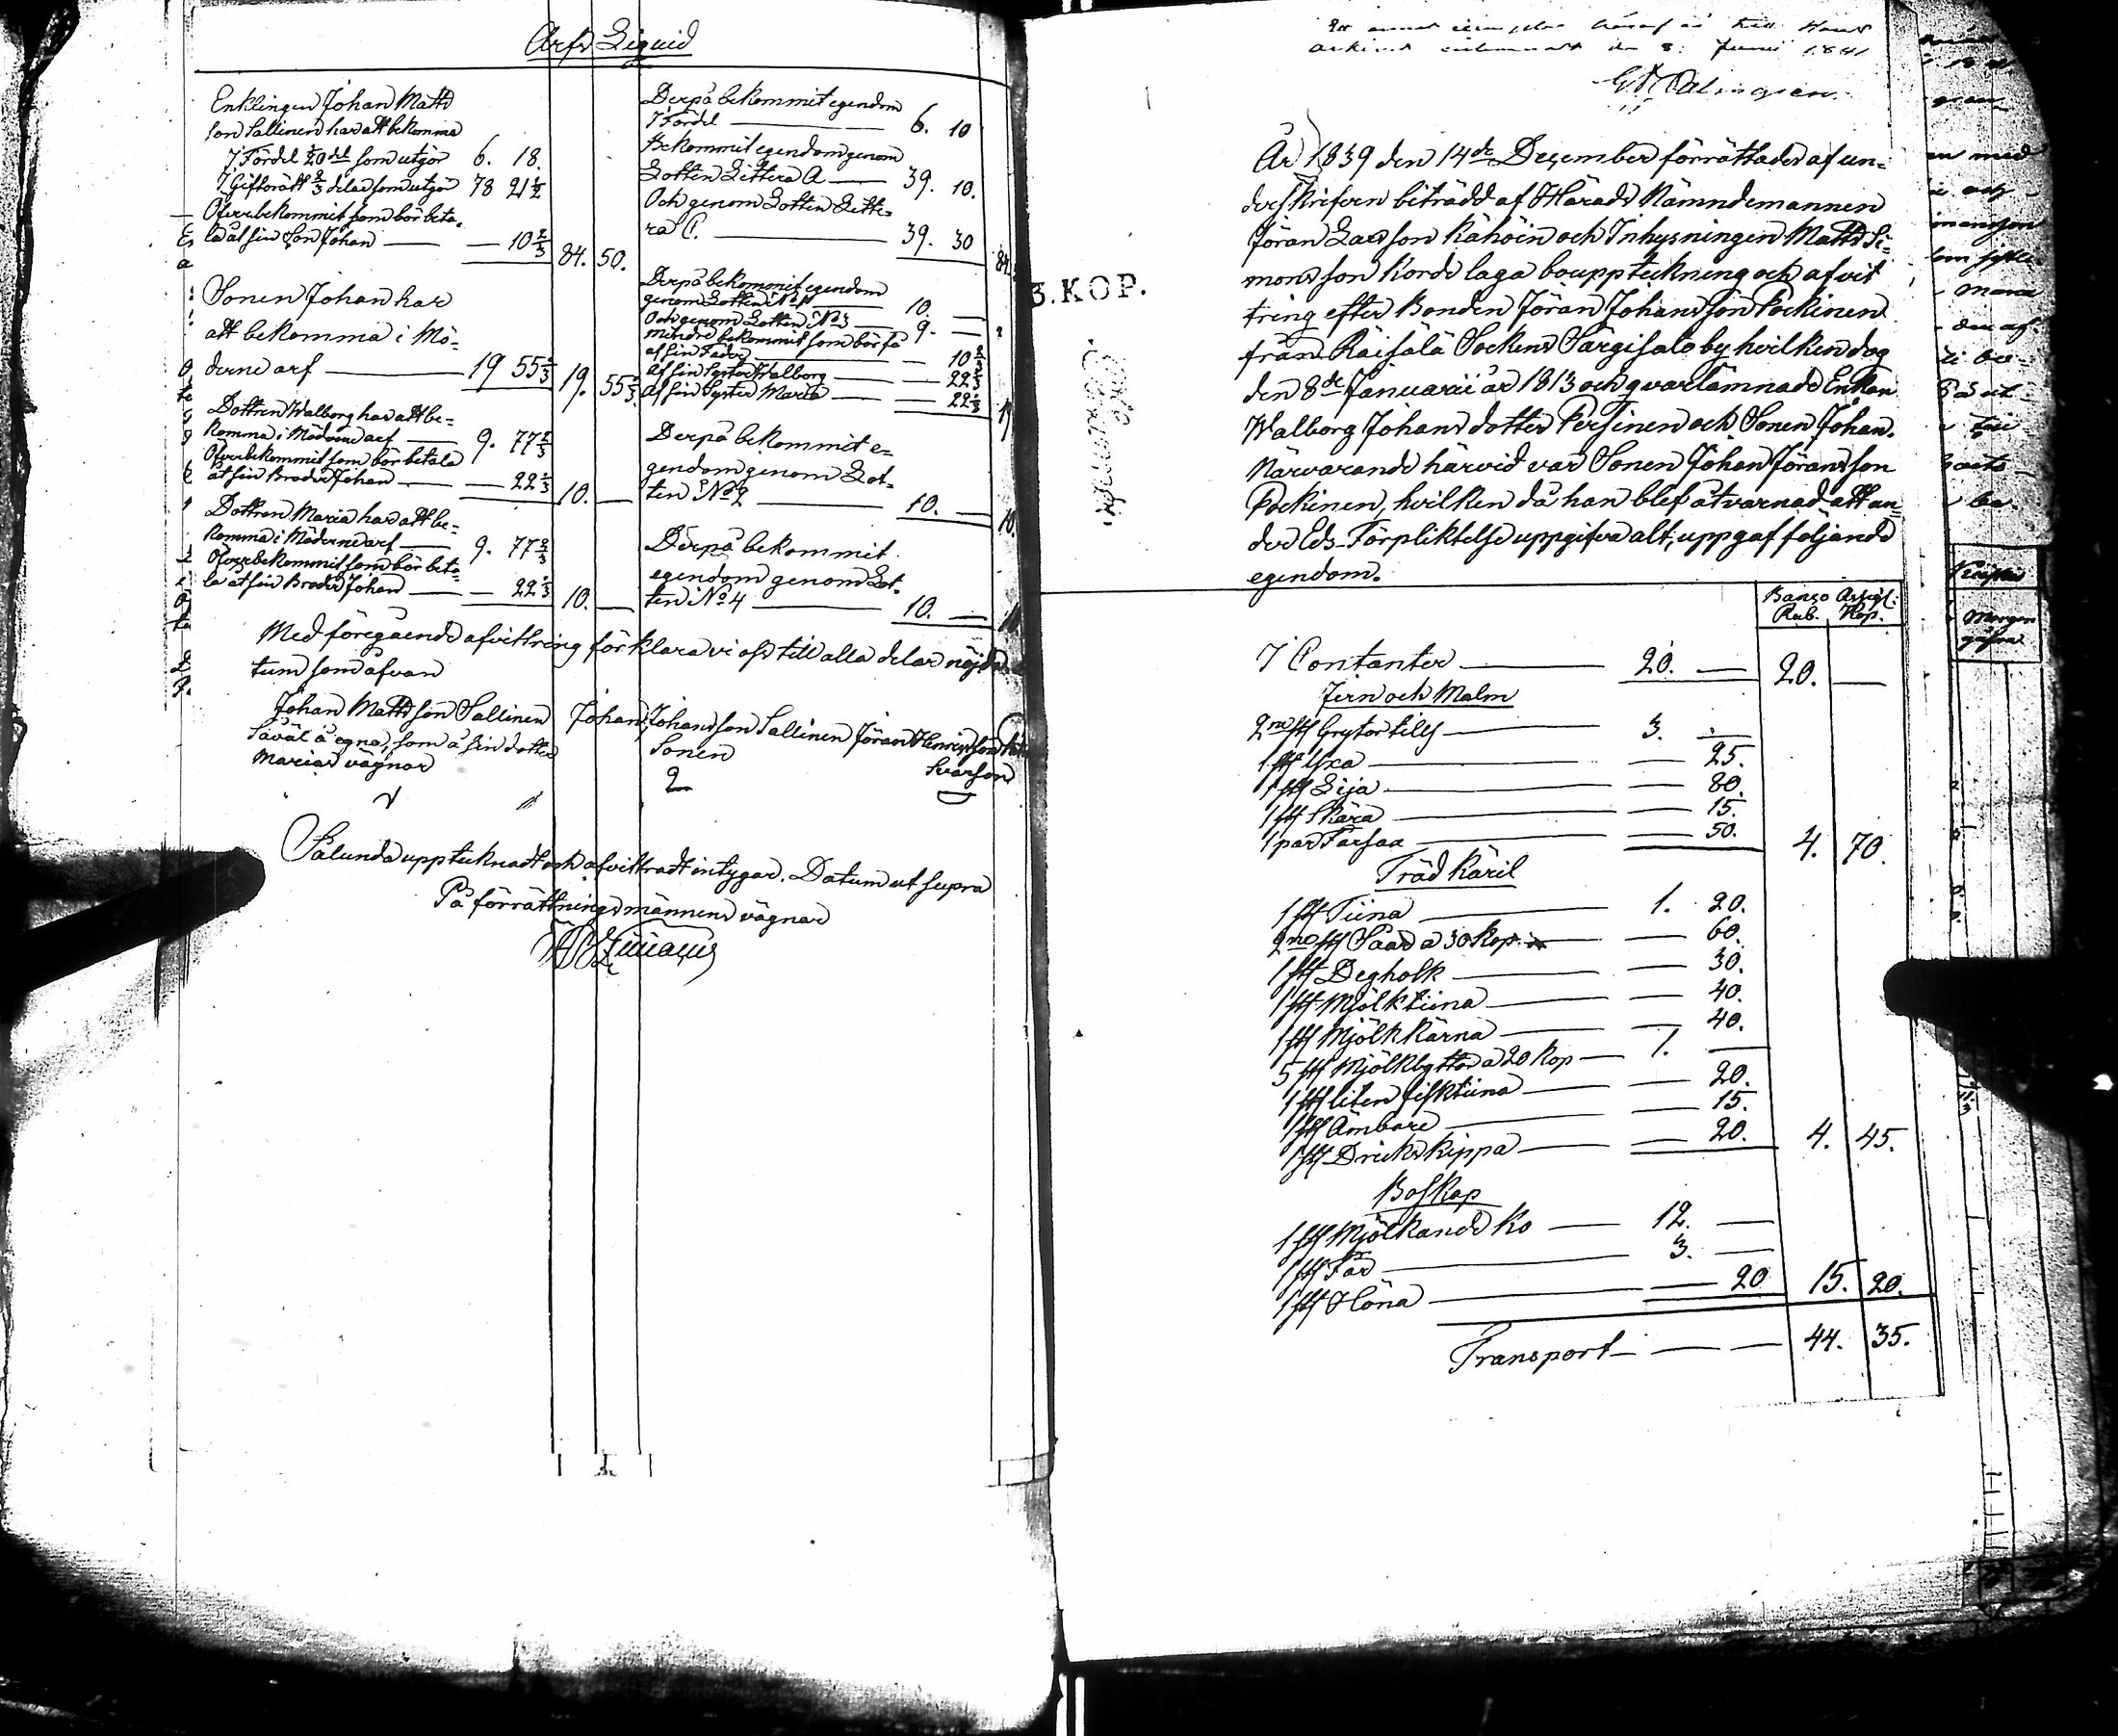 Arfs Liquid
Enklingen Johan Matts
son Sallinen har att bekomma
I Fördel 1/20 del som utgör 6. 18.
I Giftorätt 2/3 delar som utgör 78 21 1/2
Öfverbekommit som bör beta-
la åt sin Son Johan — — 10 2/3 84. 50.
Sonen Johan har
att bekomma i Mö-
derne arf — 19 55 2/3 19. 55 2/3
Dottren Walborg har att be-
komma i Möderne arf — 9. 77 2/3
Öfverbekommit som bör betala
åt sin Broder Johan — — 22 1/3 10. —
Dottren Maria har att be-
komma i Möderne arf — 9. 77 2/3
Öfverbekommit som bör beta-
la åt sin Broder Johan — — 22 1/3 10. —
Derpå bekommit egendom
i Fördel — 6. 10
Bekommit egendom genom
Lotten Littera A — 39. 10.
Och genom Lotten Litte-
ra C. — 39. 30
Derpå bekommit egendom
genom Lotten No 1 — 10. —
Och genom Lotten No 3 — 9. —
mindre bekommit som bör få
af sin Fader — — 10 2/3
Af sin Syster Walborg — — 22 1/3
Af sin Syster Maria — — 22 1/3
Derpå bekommit e-
gendom genom Lot-
ten No 2 — 10. —
Derpå bekommit
egendom genom Lot-
ten No 4 — 10. —
Med föregående afvittring förklara vi oss till alla delar nöjda
tum som åfvan
Johan Matts son Sallinen Johan Johansson Sallinen Jöran Henricsson
Såväl å egna, som å sin dotter Sonen Svärson
Marias vägnar
Sålunda upptecknadt och afvittradt intygar. Datum ut supra
På förrättningsmännens vägnar
Ett annat exemplar häraf är till
arkivet inlemnadt den 8: Junii 1841
3. KOP.
År 1839 den 14de December förrättades af un-
derskrifven biträdd af Härads Nämndemannen
Jöran Larsson Kähöin och Inhysningen Matts Si-
monsson Korde laga bouppteckning och afvit
tring efter Bonden Jöran Johansson Pockinen
från Räisälä Sockens Särgisalo by hvilken dog
den 8de Januarii år 1813 och qvarlämnade Enkan
Walborg Johans dotter Persinen och Sonen Johan.
Närvarande härvid var Sonen Johan Jöransson
Pockinen, hvilken då han blef åtvarnad att un-
der Eds-Förpliktelse uppgifva alt, uppgaf följande
egendom.
Banco Assigl:
Rub. Kop.
I Contanter — 20. — 20. —
Jern och Malm
2ne st Grytor tills — 3. —
1 st Yxa — — 25.
1 st Lija — — 80.
1 st Skära — — 15.
1 par Saxar — — 50. 4. 70.
Träd Käril
1 st Tiina — 1. 20.
2ne st Såar a 30 Kop — — 60.
1 st Degholk — — 30.
1 st Mjölktiina — — 40.
1 st Mjölk Kärna — — 40.
5 st Mjölkbyttor a 20 Kop — 1. —
1 st liten fisktiina — — 20.
1 st Ämbare — — 15.
1 st Dricks kippa — — 20. 4. 45.
Boskap
1 st Mjölkande Ko — 12. —
1 st Får — 3. —
1 st Höna — — 20 15. 20.
Transport — — — 44. 35.